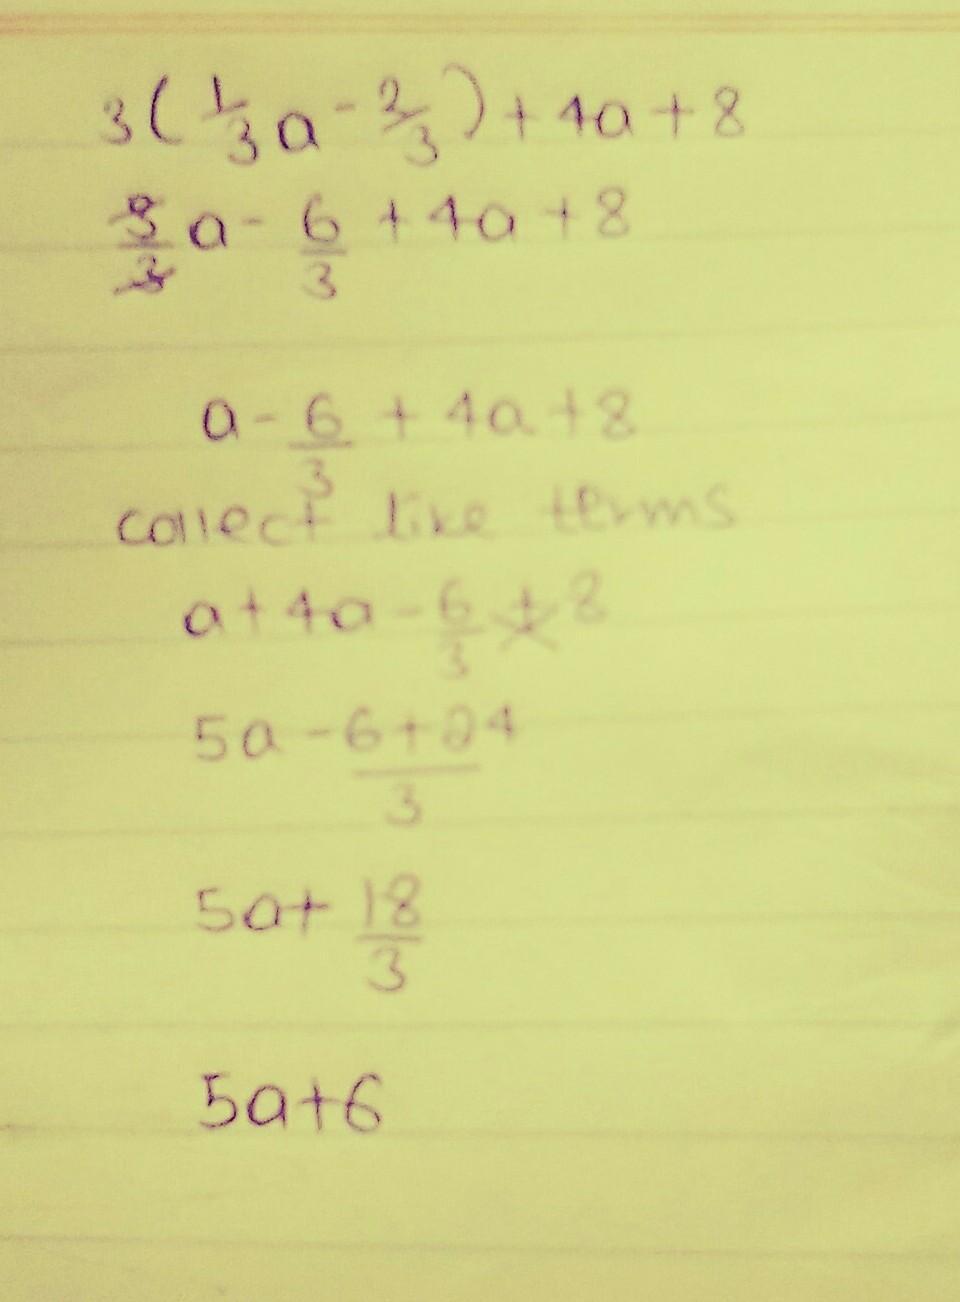 3(1/3a - 2/3) + 4a + 8
3/3 a - 6/3 + 4a + 8
a - 6/3 + 4a + 8
collect like terms
a + 4a - 6/3 + 8
5a - 6 + 24 / 3
5a + 18/3
5a + 6